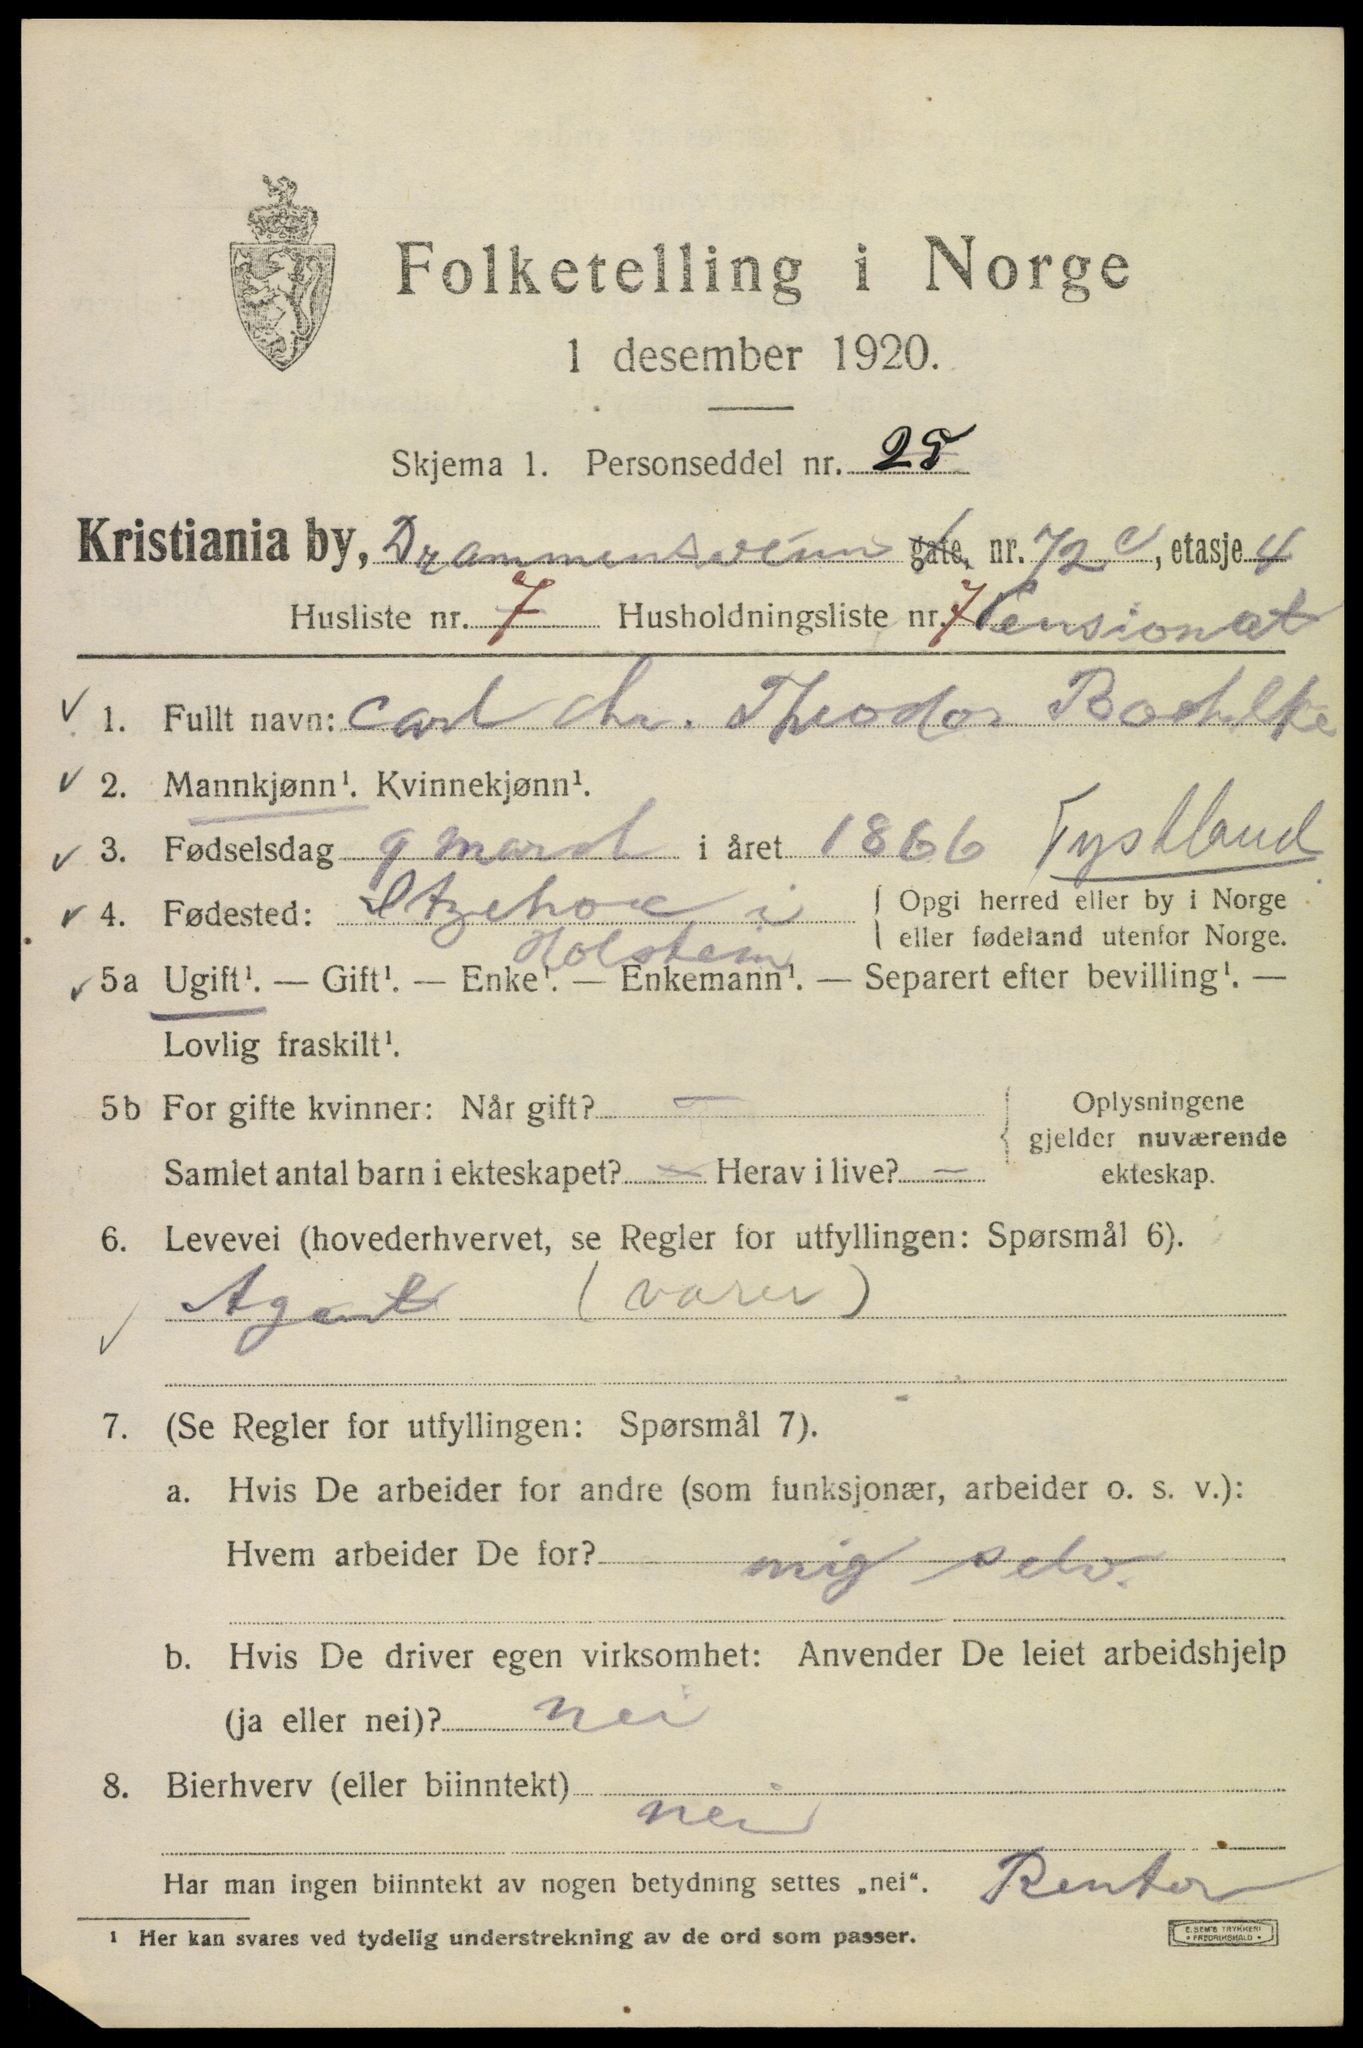 Folketelling i Norge
1 desember 1920.
Skjema 1. Personseddel nr. 25
Kristiania by, Drammensveien gate, nr. 72 c, etasje 4
Husliste nr. 7 Husholdningsliste nr. 7 Pensionat
1. Fullt navn: Carl Chr. Theodor Boehlke
2. Mannkjønn¹. Kvinnekjønn¹.
3. Fødselsdag 9 march i året 1866 Tyskland
4. Fødested: Itzehoe i { Opgi herred eller by i Norge
Holstein eller fødeland utenfor Norge.
5a Ugift¹. — Gift¹. — Enke¹. — Enkemann¹. — Separert efter bevilling¹. —
Lovlig fraskilt¹.
5b For gifte kvinner: Når gift? — { Oplysningene
gjelder nuværende
Samlet antal barn i ekteskapet? — Herav i live? — ekteskap.
6. Levevei (hovederhvervet, se Regler for utfyllingen: Spørsmål 6).
Agent (varer)
7. (Se Regler for utfyllingen: Spørsmål 7).
a. Hvis De arbeider for andre (som funksjonær, arbeider o. s. v.):
Hvem arbeider De for? mig selv.
b. Hvis De driver egen virksomhet: Anvender De leiet arbeidshjelp
(ja eller nei)? nei
8. Bierhverv (eller biinntekt) nei
Har man ingen biinntekt av nogen betydning settes „nei“. Renter
¹ Her kan svares ved tydelig understrekning av de ord som passer.
E. SEM'S TRYKKERI
• FREDRIKSHALD •